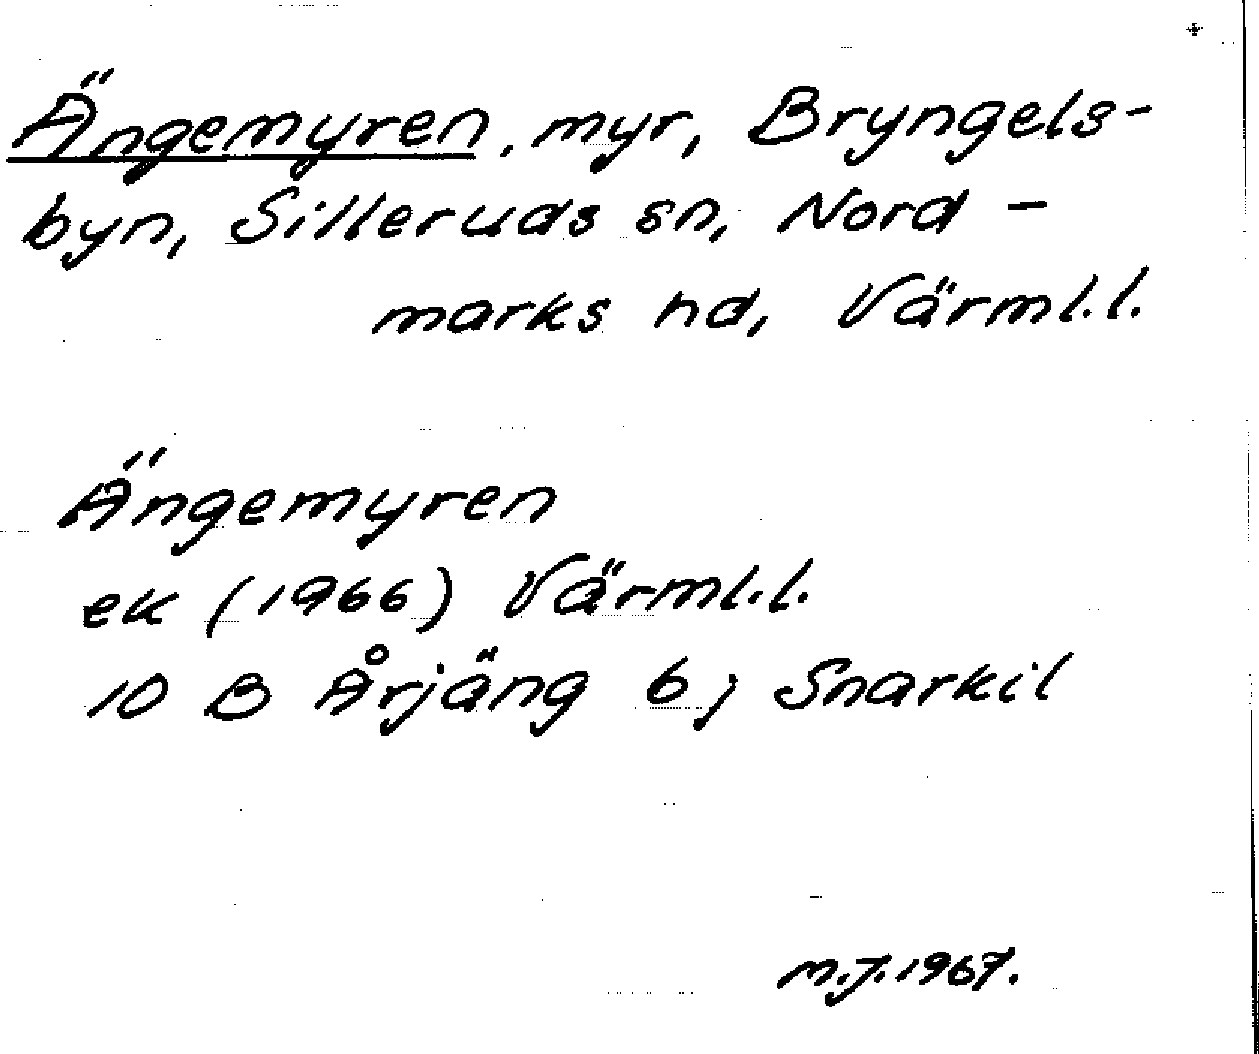 Ängemyren, myr, Bryngels-
byn, Silleruds sn, Nord-
marks hd, Värml.l.
Ängemyren
ek (1966) Värml.l.
10 B Årjäng 6j Snarkil
M.J.1967.